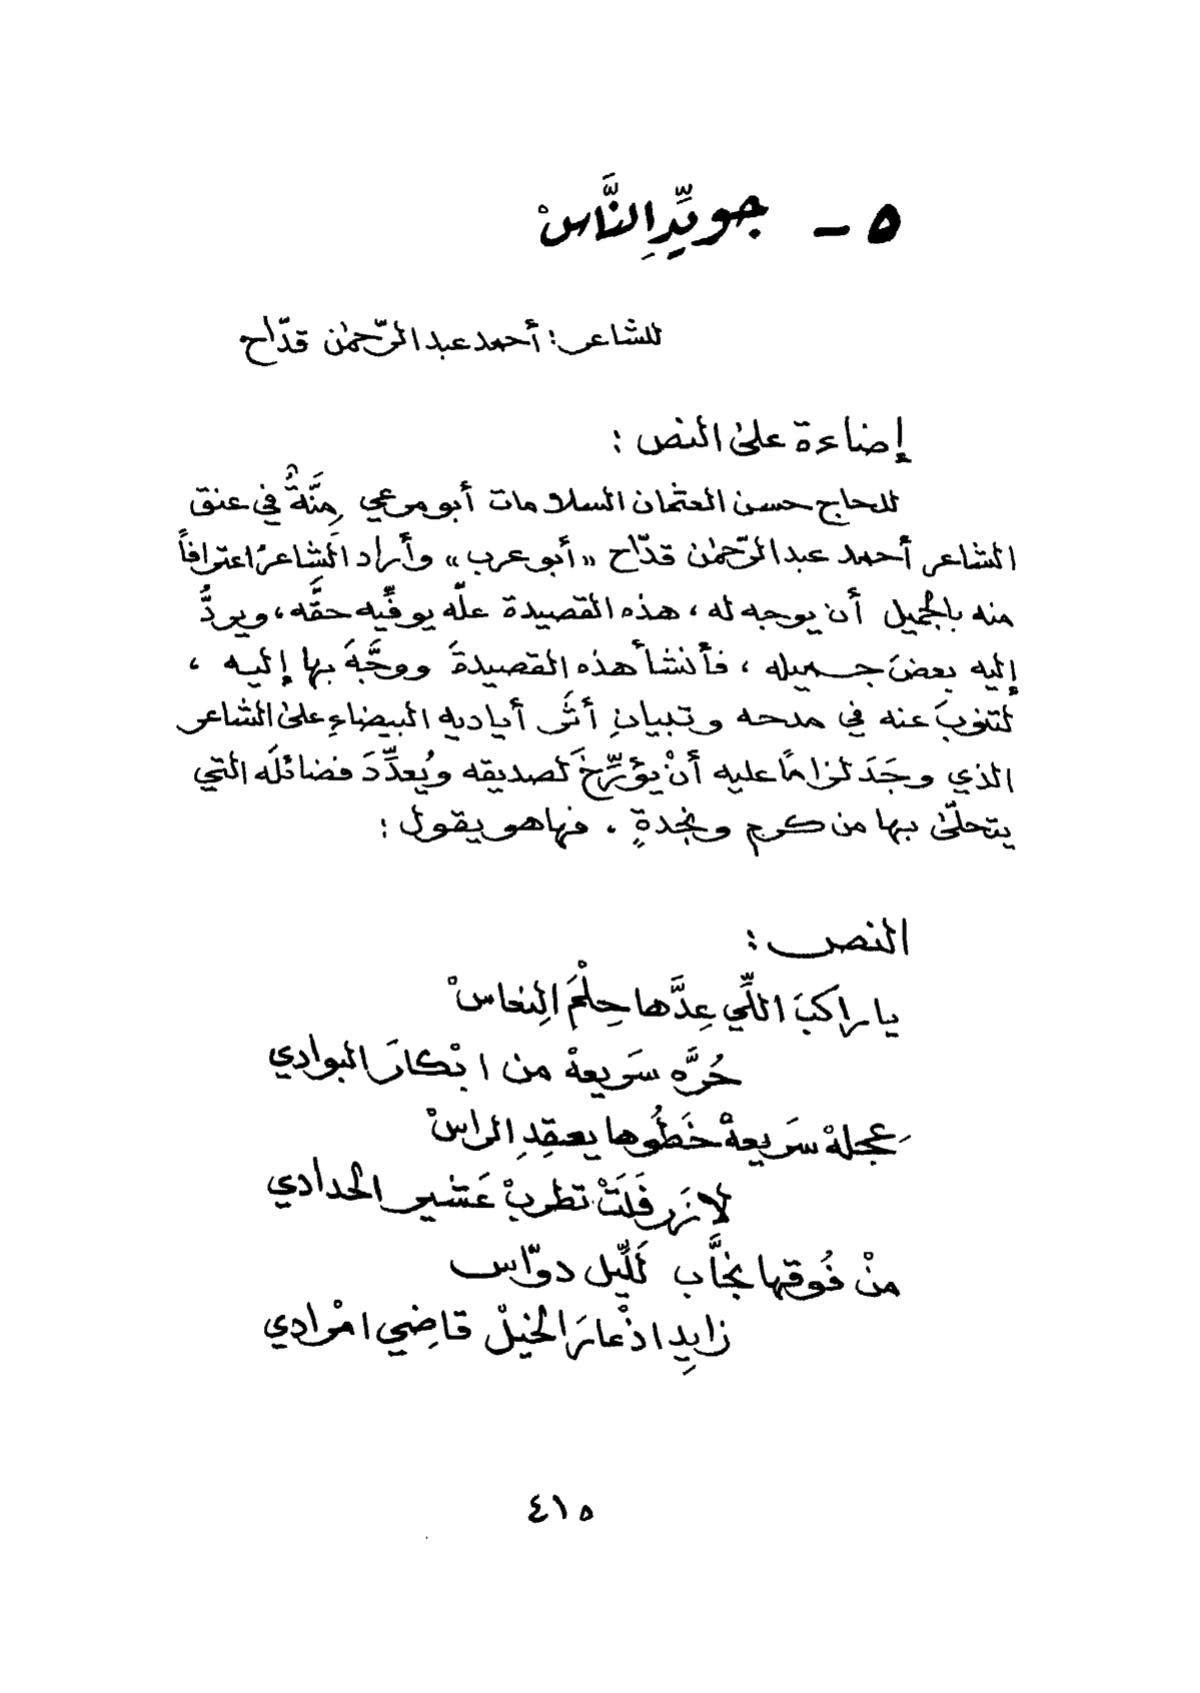 ٥ - جويِّدِ النَّاسْ
للشاعر: أحمد عبد الرّحمٰن قدّاح
إضاءة على النص :
للحاج حسن العثمان السلامات أبو مرعي مِنَّةٌ في عنق
الشاعر أحمد عبد الرّحمٰن قدّاح «أبو عرب» وأراد الشاعرُ اعترافاً
منه بالجميل أن يوجه له ، هذه القصيدة علّه يوفِّيه حقَّه ، ويردُّ
إليه بعضَ جميله ، فأنشأ هذه القصيدةَ ووجَّهَ بها إليه ،
لتنوبَ عنه في مدحه وتبيانِ أثَر أياديه البيضاءِ على الشاعر
الذي وجَدَ لزاماً عليه أنْ يؤرِّخَ لصديقه ويُعدِّدَ فضائلَه التي
يتحلّىٰ بها من كرم ونجدةٍ . فها هو يقول :
النص :
يا راكبَ اللِّي عِدَّها حِلْمَ الِنعاسْ
حُرَّه سَريعهْ من ابْكارَ البوادي
عَجلهْ سَريعهْ خَطُوها يعقِدِ الراسْ
لا نَرفَلَتْ تطربْ عَشير الحدادي
منْ فُوقها نجَّاب لَلِّيل دوّاس
زايدِ اذْعارَ الخيلْ قاضِي امْرادي
٤١٥